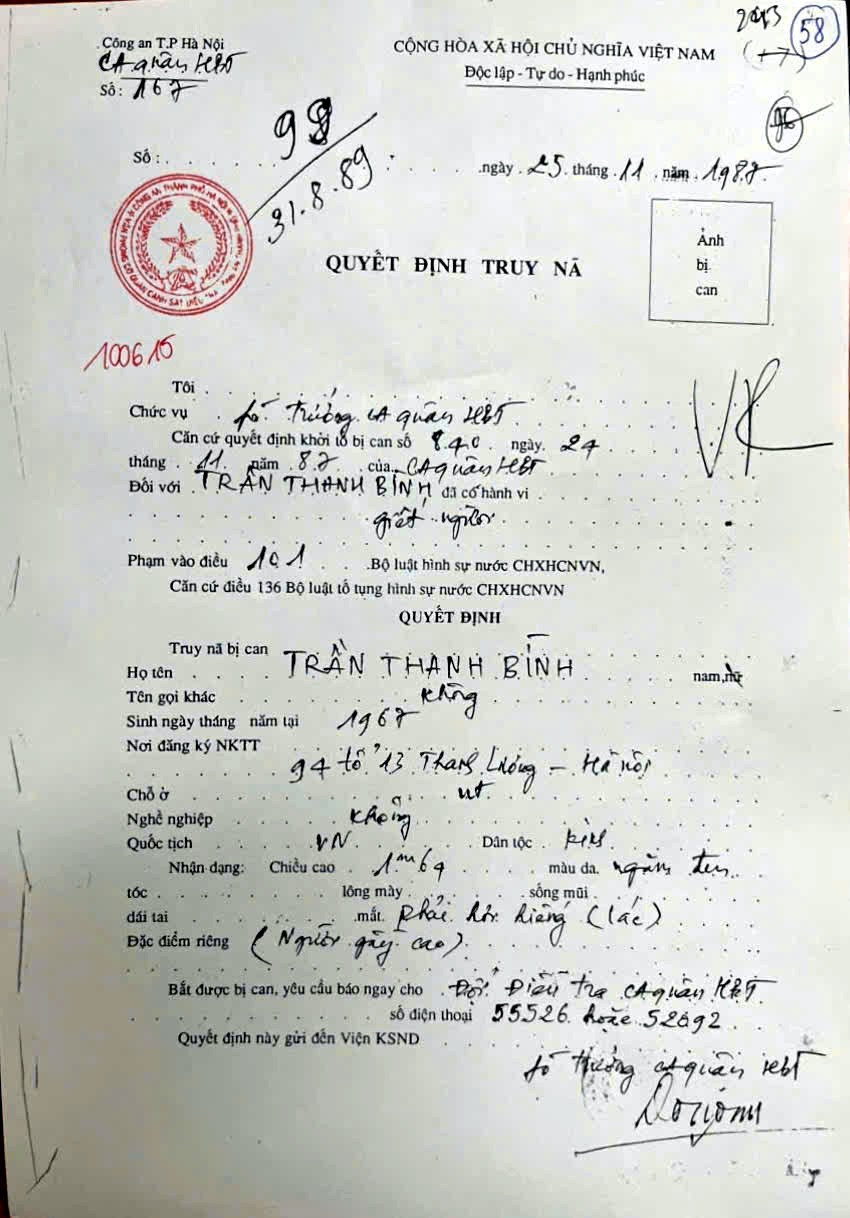 2013
58
Công an T.P Hà Nội
CA quận HBT
Số: 167
CỘNG HÒA XÃ HỘI CHỦ NGHĨA VIỆT NAM
Độc lập - Tự do - Hạnh phúc
98
Số: . . . . . ngày 25 tháng 11 năm 1987
31.8.89
QUYẾT ĐỊNH TRUY NÃ
Ảnh
bị
can
100615
VK
Tôi
Chức vụ . Phó trưởng CA quận HBT
Căn cứ quyết định khởi tố bị can số 840 ngày 24
tháng 11 năm 87 của CA quận HBT
Đối với TRẦN THANH BÍNH đã có hành vi
giết người
Phạm vào điều 101 Bộ luật hình sự nước CHXHCNVN,
Căn cứ điều 136 Bộ luật tố tụng hình sự nước CHXHCNVN
QUYẾT ĐỊNH
Truy nã bị can
Họ tên TRẦN THANH BÍNH nam, nữ
Tên gọi khác Không
Sinh ngày tháng năm tại 1967
Nơi đăng ký NKTT
94 tổ 13 Thanh Lương - Hà Nội
Chỗ ở nt
Nghề nghiệp Không
Quốc tịch VN Dân tộc kinh
Nhận dạng: Chiều cao 1m64 màu da ngăm đen
tóc lông mày sống mũi
dái tai mắt Phải hơi hiếng (lác)
Đặc điểm riêng (Người gầy cao)
Bắt được bị can, yêu cầu báo ngay cho Đội Điều tra CA quận HBT
số điện thoại 55526 hoặc 52892
Quyết định này gửi đến Viện KSND
Phó trưởng CA quận HBT